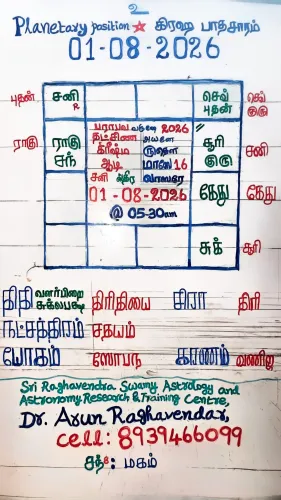 உ
Planetary position ★ கிரஹ பாதசாரம்
01-08-2026
புதன் சனி R செவ் புதன் செவ் குரு
பராபவ வருடம் 2026
ராகு ராகு சந் தட்சிண அயனம் சூரி குரு சனி
கிரீஷ்ம ருது
ஆடி மாஸ 16
சனி ஸ்திர வாஸர
01-08-2026 கேது கேது
@ 05-30am
சுக் சூரி
திதி வளர்பிறை சுக்லபக்ஷ திரிதியை சிரா திரி
நட்சத்திரம் சதயம்
யோகம் ஸோபந கரணம் வணிஜ
Sri Raghavendra Swamy Astrology and
Astronomy Research & Training Centre,
Dr. Arun Raghavendar,
cell: 8939466099
சந்: மகம்